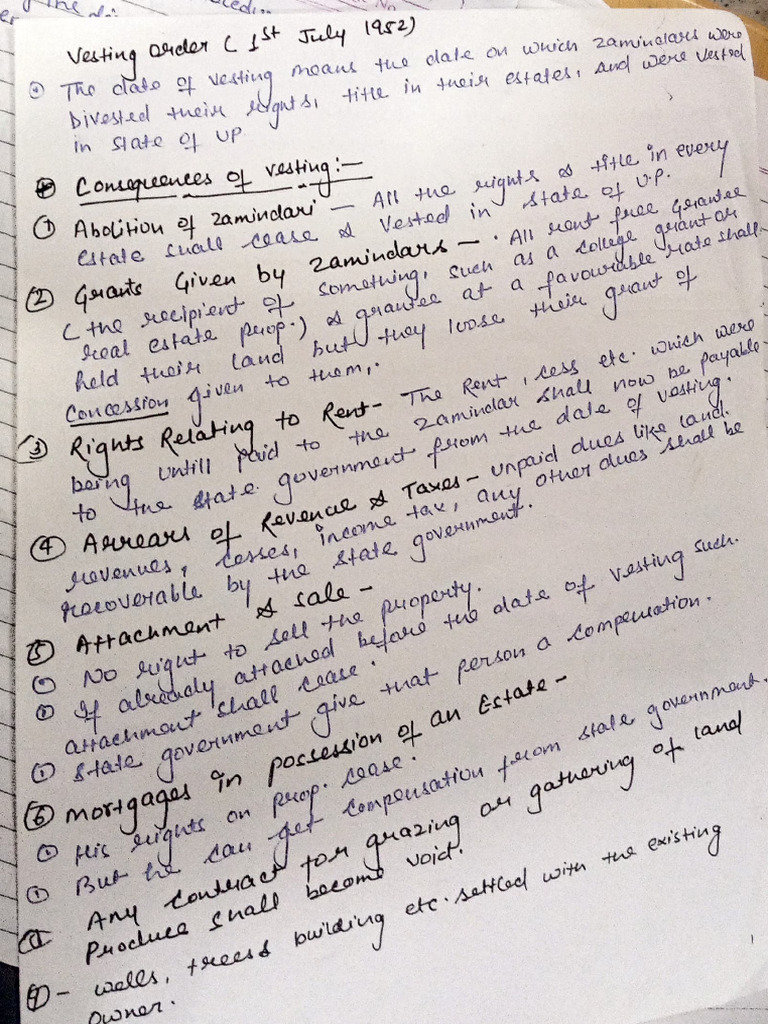 Vesting order (1st July 1952)
The date of vesting means the date on which zamindars were
Divested their rights, title in their estates, and were vested
in State of UP
Consequences of vesting:-
① Abolition of zamindari - All the rights & title in every
estate shall cease & vested in State of U.P.
② Grants Given by zamindars - . All rent free grantee
(the recipient of something, such as a college grant or
real estate prop.) & grantee at a favourable rate shall
held their land but they loose their grant of
Concession given to them,.
③ Rights Relating to Rent - The Rent, cess etc. which were
being untill paid to the zamindar shall now be payable
to the state government from the date of vesting.
④ Arrears of Revenue & Taxes - unpaid dues like land.
revenues, cesses, income tax, any other dues shall be
recoverable by the state government.
⑤ Attachment & sale -
No right to sell the property.
If already attached before the date of vesting such.
attachment shall cease.
State government give that person a compensation.
⑥ mortgages in possession of an Estate -
His rights on prop. cease.
But he can get compensation from state government.
Any contract for grazing or gathering of land
produce shall become void.
⑦ - wells, trees & building etc. settled with the existing
owner.